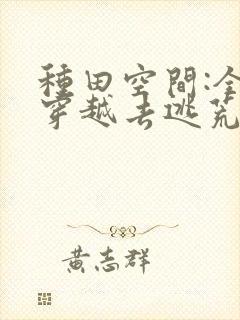 種田空間:全
穿越去逃荒
黃志群